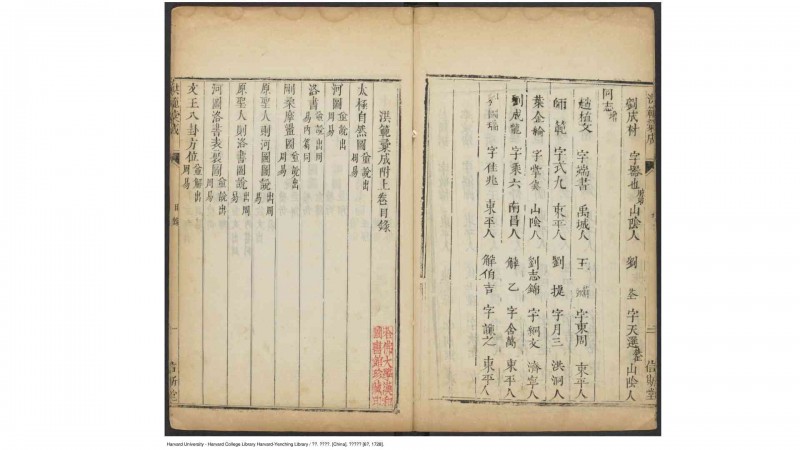 劉成材 字器也 山陰人 劉 字天選 山陰人
同志
趙植文 字端書 禹城人 王 字東周 東平人
師範 字式九 東平人 劉提 字月三 洪洞人
葉金綸 字 山陰人 劉志錦 字綱文 濟寧人
劉成龍 字乘六 南昌人 解乙 字含萬 東平人
字佳兆 東平人 解伯吉 字謙之 東平人
信斯堂
洪範彙成附上卷目錄
太極自然圖 俞說出周易
河圖 俞說出周易
洛書 俞說出周易內篇同
剛柔摩盪圖 俞說出周易
原聖人則河圖圖說 出周易
原聖人則洛書圖說 出周易
河圖洛書表裏圖 俞說出周易
文王八卦方位 俞解出周易
洪範彙成
目錄
一
信斯堂
哈佛大學漢和
圖書館珍藏印
Harvard University - Harvard College Library Harvard-Yenching Library / ??. ????. [China]. ????? [67, 1728].